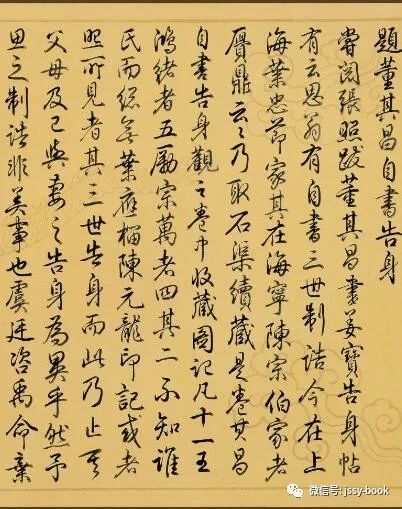 題董其昌自書告身
嘗閱張照跋董其昌書姜寶告身帖
有云思翁有自書三世制誥今在上
海葉忠節家其在海寧陳宗伯家者
贗鼎云〻乃取石渠續藏是卷其昌
自書告身觀之卷中收藏圖記凡十一王
鴻緒者五勵宗萬者四其二不知誰
氏而總無葉應榴陳元龍印記或者
照所見者其三世告身而此乃止其
父母及己與妻之告身為異乎然予
思之制誥非美事也虞廷咨禹命棄
微信号: jssy-book